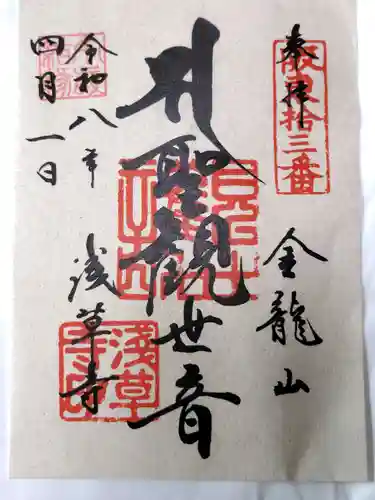 奉拝
坂東拾三番
金龍山
聖観世音
浅草寺
令和八年
四月一日
浅草寺印